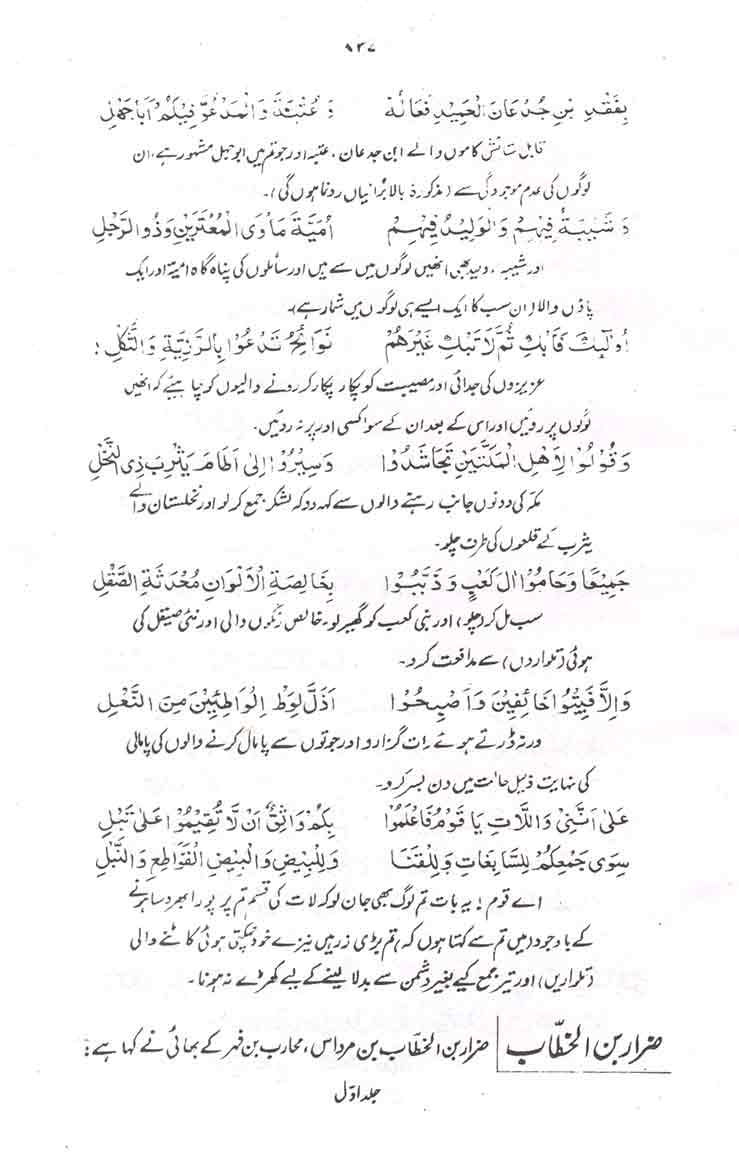 ۸۴۷
بِفَقْدِ بْنِ جُدْعَانَ الْحَمِيْدِ فَعَالُهٗ وَعُتْبَةَ وَالْمَدْعُوِّ فِيْكُمْ أَبَاجَهْلِ
قابل ستائش کاموں والے ابن جدعان، عتبہ اور جو تم میں ابوجہل مشہور ہے، ان
لوگوں کی عدم موجودگی سے (مذکورہ بالا برائیاں رونما ہوں گی)۔
وَشَيْبَةُ فِيْهِمْ وَالْوَلِيْدُ فِيْهِمْ أُمَيَّةُ مَأْوَى الْمُعْتَرِيْنَ وَذُو الرَّجْلِ
اور شیبہ، ولید بھی انھیں لوگوں میں سے ہیں اور سائلوں کی پناہ گاہ امیۃ اور ایک
پاؤں والا (ان سب کا ایک ایسے ہی لوگوں میں شمار ہے)۔
أُولٰئِكَ فَابْكِ ثُمَّ لَا تَبْكِ غَيْرَهُمْ نَوَائِحُ تَدْعُوْا بِالرَّزِيَّةِ وَالثُّكْلِ؛
عزیزوں کی جدائی اور مصیبت کو پکار پکار کر رونے والیوں کو چاہئے کہ انھیں
لوگوں پر روئیں اور اس کے بعد ان کے سوا کسی اور پر نہ روئیں۔
وَقُوْلُوْا لِأَهْلِ الْمَكَّتَيْنِ تَحَاشَدُوْا وَسِيْرُوْا إِلٰى آطَامِ يَثْرِبَ ذِي النَّخْلِ
مکہ کی دونوں جانب رہنے والوں سے کہہ دو کہ لشکر جمع کر لو اور نخلستان والے
یثرب کے قلعوں کی طرف چلو۔
جَمِيْعًا وَحَامُوْا آلَ كَعْبٍ وَذَبِّبُوْا بِخَالِصَةِ الْأَلْوَانِ مُحْدَثَةِ الصَّقْلِ
سب مل کر (چلو) اور بنی کعب کو گھیر لو۔ خالص رنگوں والی اور نئی صیقل کی
ہوئی (تلواروں) سے مدافعت کرو۔
وَإِلَّا فَبِيْتُوْا خَائِفِيْنَ وَأَصْبِحُوْا أَذَلَّ لِوَطْءِ الْوَاطِئِيْنَ مِنَ النَّعْلِ
ورنہ ڈرتے ہوئے رات گزارو اور جوتوں سے پامال کرنے والوں کی پامالی
کی نہایت ذلیل حالت میں دن بسر کرو۔
عَلٰى أَنَّنِيْ وَاللَّاتِ يَا قَوْمُ فَاعْلَمُوْا بِكُمْ وَاثِقٌ أَنْ لَّا تُقِيْمُوْا عَلٰى تَبْلِ
سِوٰى جَمْعِكُمْ لِلسَّابِغَاتِ وَلِلْقَنَا وَلِلْبِيْضِ وَالْبِيْضِ الْقَوَاطِعِ وَالنَّبْلِ
اے قوم! یہ بات تم لوگ بھی جان لو کہ لات کی قسم تم پر پورا بھروسا ہونے
کے باوجود (میں تم سے کہتا ہوں کہ) تم بڑی زرہیں نیزے خود چمکتی ہوئی کاٹنے والی
(تلواریں) اور تیر جمع کیے بغیر دشمن سے بدلا لینے کے لیے کھڑے نہ ہونا۔
ضرار بن الخطّاب
ضرار بن الخطّاب بن مرداس، محارب بن فہر کے بھائی نے کہا ہے:
جلد اوّل